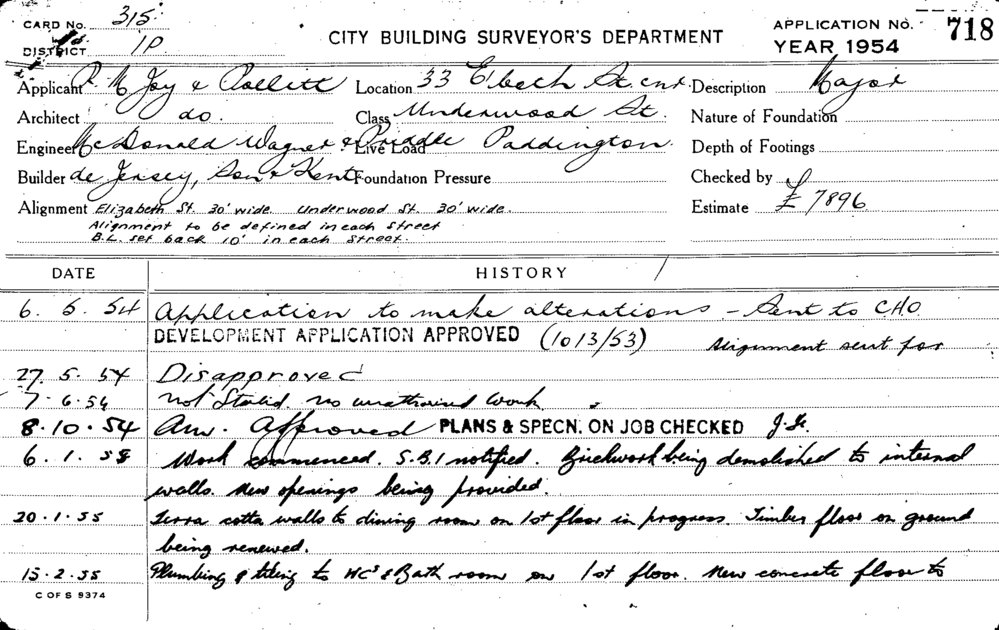 CARD No. 315
DISTRICT 10
CITY BUILDING SURVEYOR'S DEPARTMENT
APPLICATION No. 718
YEAR 1954
Applicant P. M Joy & Pollitt Location 33 Elbeth St. cnr. Description Major
Architect do. Class Underwood St. Nature of Foundation
Engineer McDonald Wagner & Priddle Live Load Paddington. Depth of Footings
Builder de Jersey, Son & Kent Foundation Pressure Checked by
Alignment Elizabeth St. 30' wide. Underwood St. 30' wide. Estimate £ 7896
Alignment to be defined in each street
B.L. set back 10' in each street.
DATE HISTORY
6. 5. 54 Application to make alterations - Sent to CHO
DEVELOPMENT APPLICATION APPROVED (1013/53) Alignment sent for
27. 5. 54 Disapproved
7. 6. 54 not Started. no unathorised work
8. 10. 54 Am. Approved PLANS & SPECN. ON JOB CHECKED
6. 1. 55 Work commenced. S.B.I notified. Brickwork being demolished to internal
walls. New openings being provided.
20. 1. 55 Terra cotta walls to dining room on 1st floor in progress. Timber floor on ground
being renewed.
15. 2. 55 Plumbing & tiling to WCs & Bath room on 1st floor. New concrete floor to
C OF S 9374